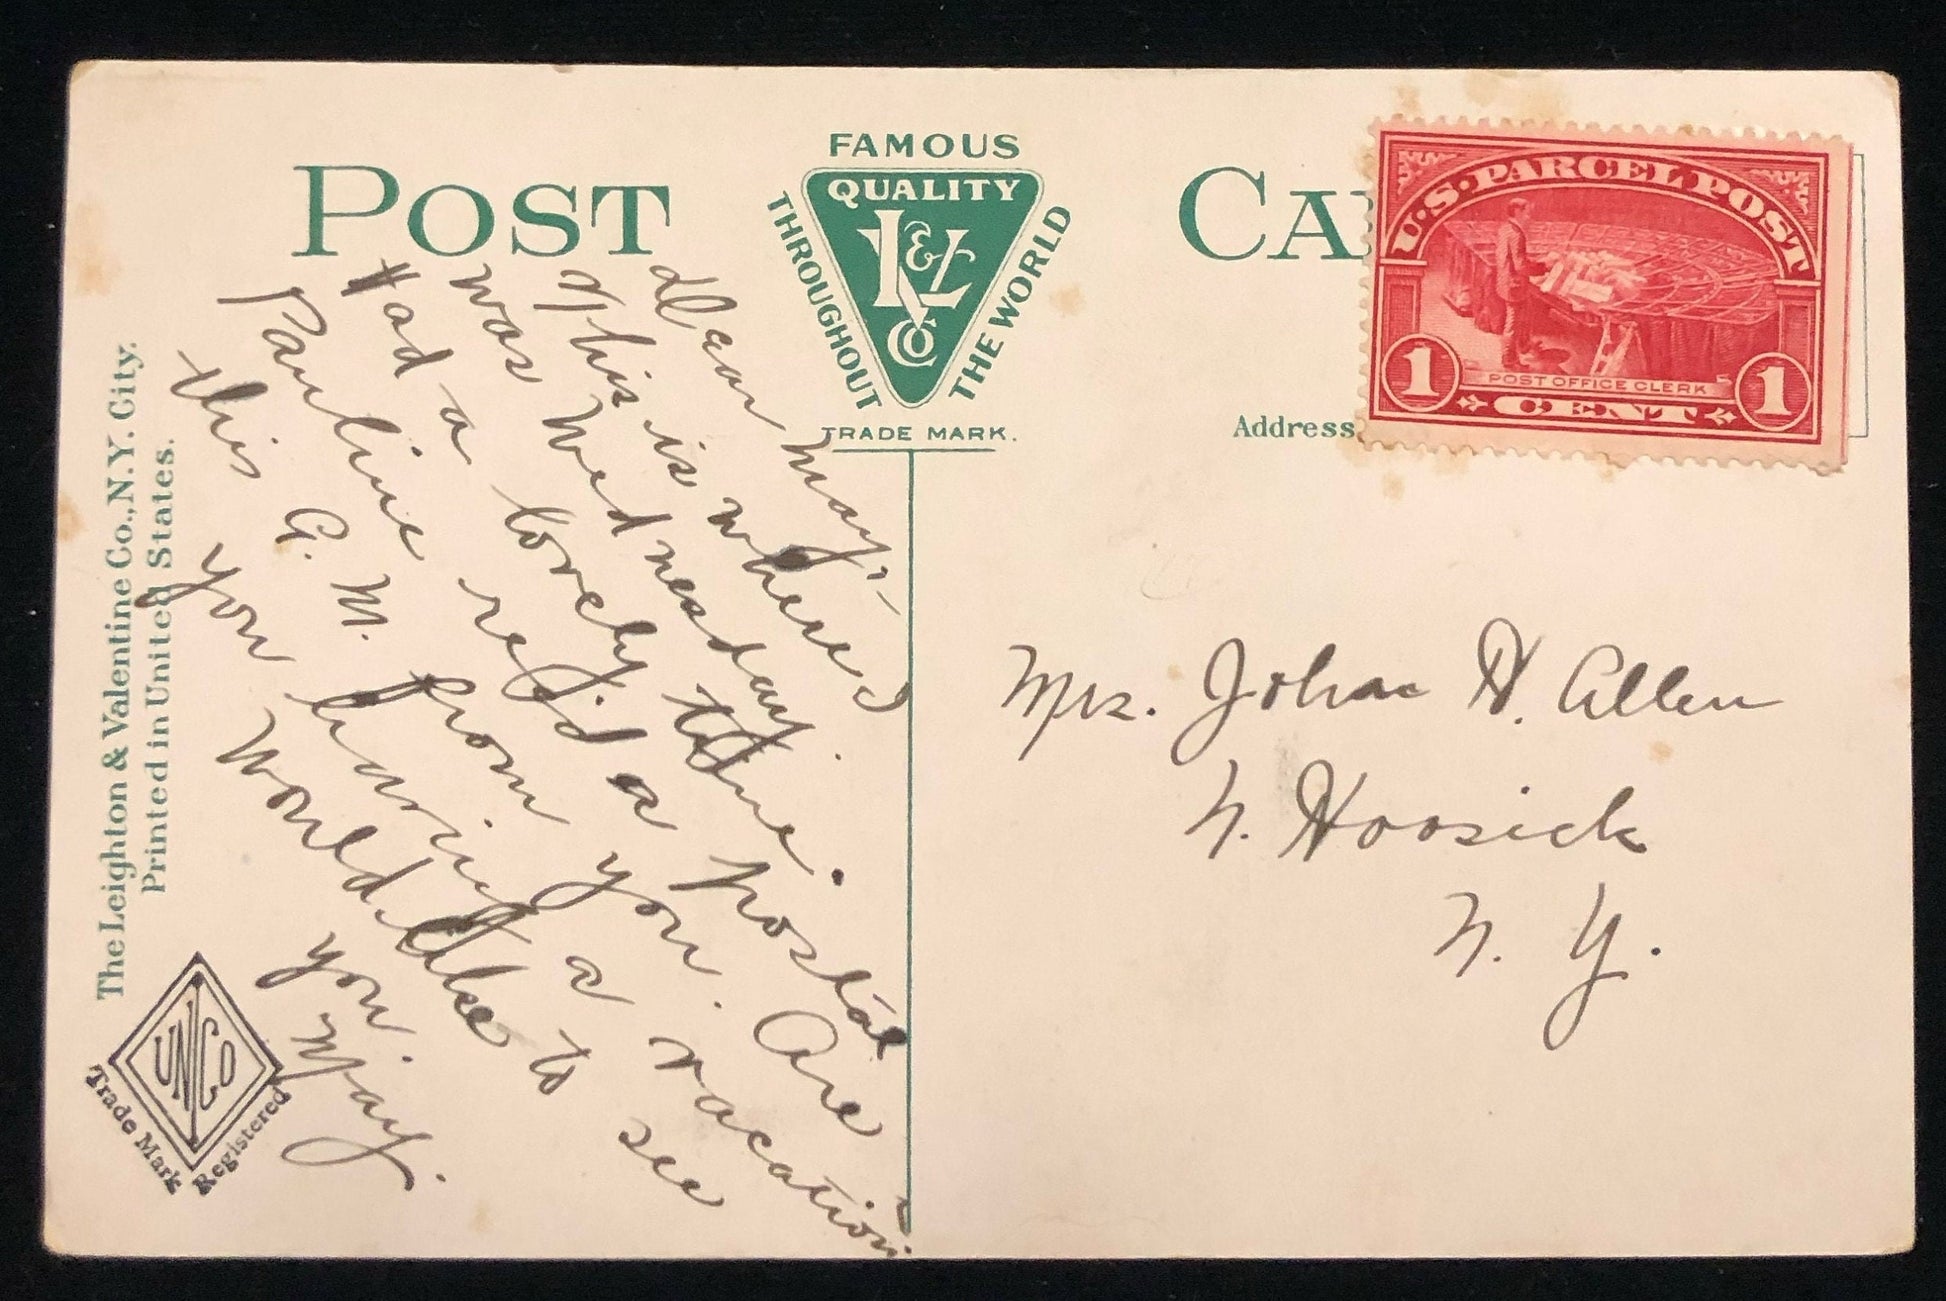 POST CA
FAMOUS
QUALITY
THROUGHOUT THE WORLD
L&V
Co
TRADE MARK.
U.S. PARCEL POST
POST OFFICE CLERK
1 CENT 1
Address
Dear May:-
This is where I
was Wednesday
Had a lovely time.
Pauline rec'd a postal
this A. M. from you. Are
you having a vacation.
Would like to see
you.
May.
Mrs. John H. Allen
N. Hoosick
N. Y.
The Leighton & Valentine Co., N.Y. City.
Printed in United States.
UNCO
Trade Mark Registered